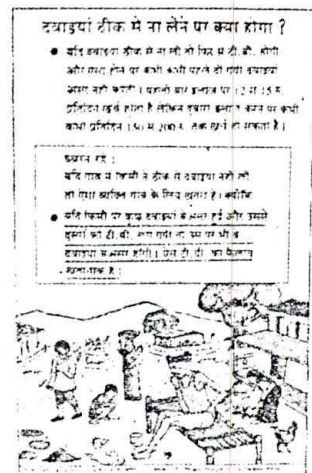 दवाइयां ठीक से ना लेने पर क्या होगा ?
● यदि दवाइयां ठीक से ना ली तो फिर से टी. बी. होगी
और ऐसा होने पर कभी कभी पहले दी गयी दवाइयां
असर नहीं करती । पहली बार इलाज पर 12 से 15 रु.
प्रतिदिन खर्च होता है लेकिन दुबारा इलाज करने पर कभी
कभी प्रतिदिन 150 से 200 रु. तक खर्च हो सकता है ।
ध्यान रहे :
यदि गांव में किसी ने ठीक से दवाइयां नहीं ली
तो ऐसा व्यक्ति गांव के लिए खतरा है । क्योंकि
● यदि किसी पर कुछ दवाइयां बेअसर हुई और उससे
दूसरों को टी. बी. लग गयी तो उस पर भी वे
दवाइयां बेअसर होंगी । ऐसे टी. बी. का फैलाव
खतरनाक है ।